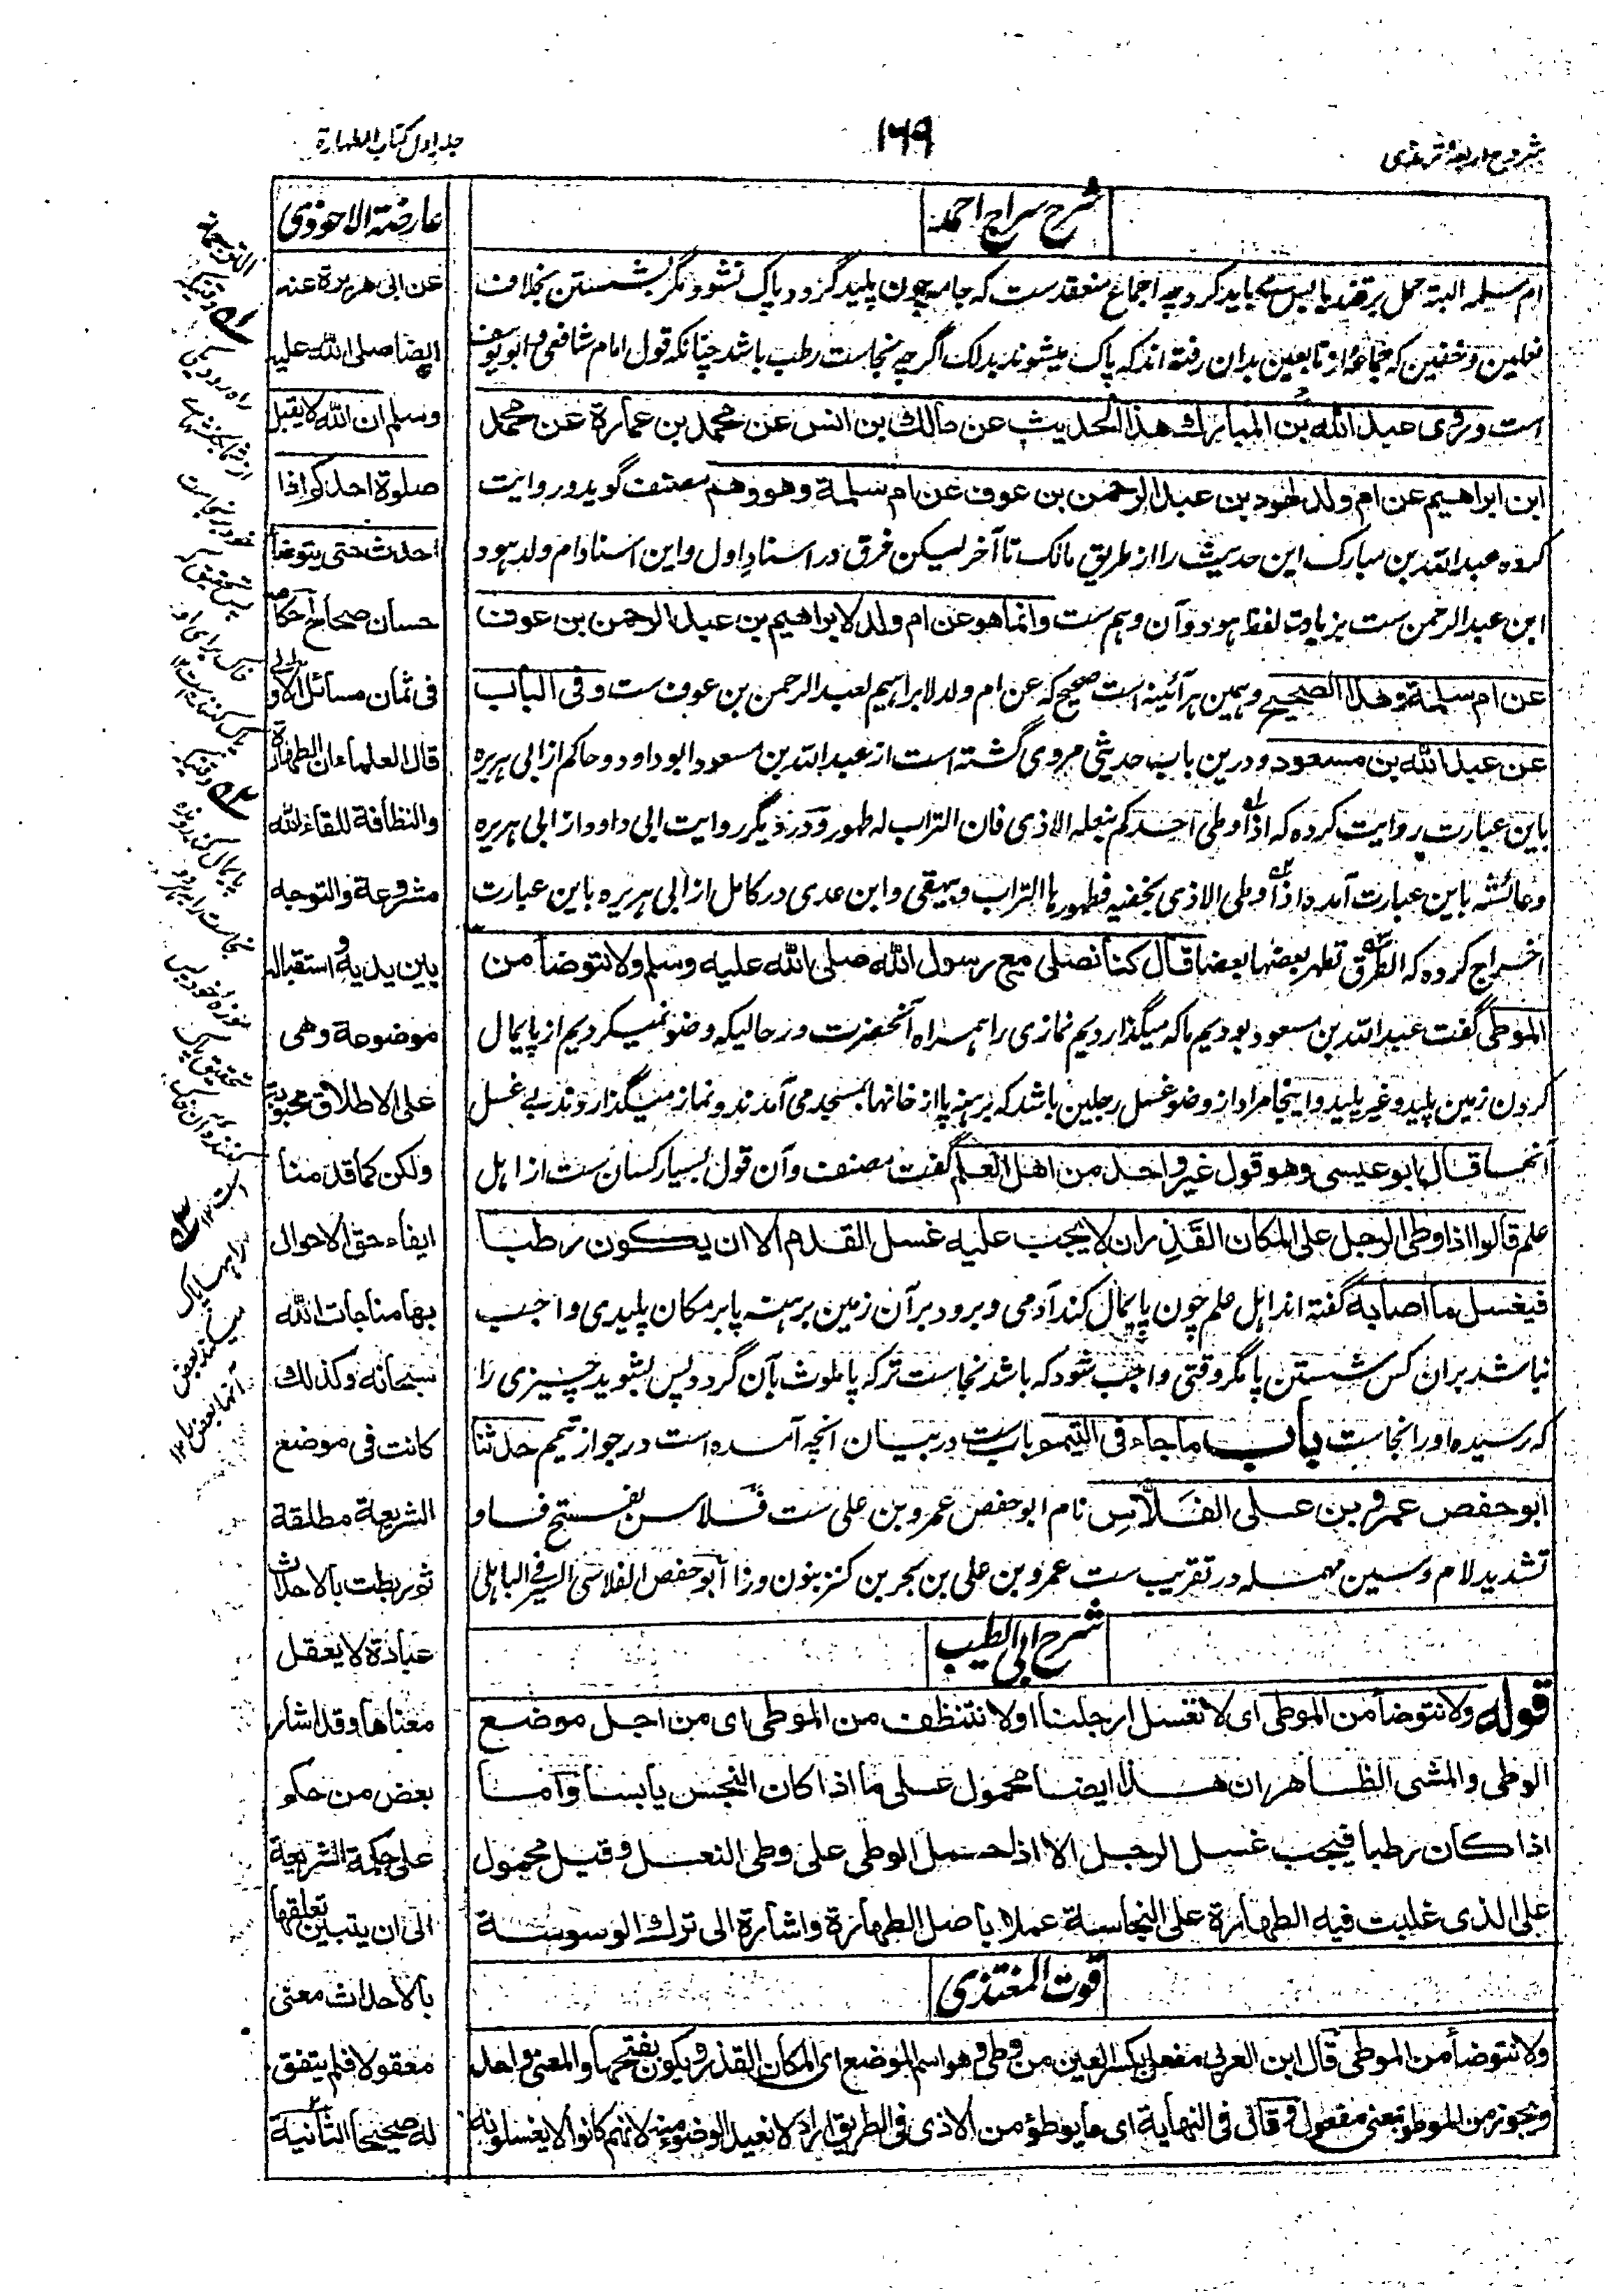 شروح اربعهٔ ترمذی
۱۶۹
جلد اول کتاب الطهارة
شرح سراج احمد
ام سلمه البته حمل بر قذر یابس باید کرد چه اجماع منعقدست که جامه چون پلید گردد پاک نشود مگر بشستن بخلاف
نعلین و خفین که جماعهٔ از تابعین بدان رفته اند که پاک میشوند بدلک اگرچه نجاست رطب باشد چنانکه قول امام شافعی و ابویوسف
است وروی عبد الله بن المبارك هذا الحدیث عن مالك بن انس عن محمد بن عمارة عن محمد
ابن ابراهیم عن ام ولد لهود بن عبد الرحمن بن عوف عن ام سلمة وهو وهم مصنف گوید و روایت
کرده عبد الله بن مبارک این حدیث را از طریق مالک تا آخر لیکن فرق در اسناد اول و این اسناد ام ولد هود
ابن عبد الرحمن ست بزیادت لفظ هود و آن وهم ست وانما هو عن ام ولد لابراهیم بن عبد الرحمن بن عوف
عن ام سلمة وهذا الصحیح و همین هر آئینه است صحیح که عن ام ولد لابراهیم لعبد الرحمن بن عوف ست وفی الباب
عن عبد الله بن مسعود و درین باب حدیثی مروی گشته است از عبد الله بن مسعود ابوداود و حاکم از ابی هریره
باین عبارت روایت کرده که اذا وطی احدکم بنعله الاذی فان التراب له طهور و در دیگر روایت ابی داود از ابی هریره
و عائشه باین عبارت آمده اذا وطی الاذی بخفیه فطهورها التراب و بیهقی و ابن عدی در کامل از ابی هریره باین عبارت
اخراج کرده که الطرق تطهر بعضها بعضا قال كنا نصلی مع رسول الله صلی الله علیه وسلم ولا نتوضأ من
الموطی گفت عبد الله بن مسعود بودیم ما که میگذاردیم نمازی را همراه آنحضرت در حالیکه وضو نمیکردیم از پایمال
کردن زمین پلید و غیر پلید و اینجا مراد از وضو غسل رجلین باشد که برهنه پا از خانها بمسجد می آمدند و نماز میگذاردند بی غسل
آنها قال ابو عیسی وهو قول غیر واحد من اهل العلم گفت مصنف و آن قول بسیار کسان ست از اهل
علم قالوا اذا وطی الرجل علی المکان القذر ان لا یجب علیه غسل القدم الا ان یکون رطبا
فیغسل ما اصابه گفته اند اهل علم چون پایمال کند آدمی و برود بر آن زمین برهنه پا بر مکان پلیدی واجب
نباشد بران کس شستن پا مگر وقتی واجب شود که باشد نجاست تر که پا ملوث بآن گردد پس بشوید چیزی را
که رسیده او را نجاست باب ما جاء فی التیمم باب ست در بیان انچه آمده است در جواز تیمم حدثنا
ابو حفص عمرو بن علی الفلاس نام ابوحفص عمرو بن علی ست فلاس بفتح فا و
تشدید لام و سین مهمله در تقریب ست عمرو بن علی بن بحر بن کنز بنون وزا ابو حفص الفلاس الصیرفی الباهلی
شرح ابی الطیب
قوله ولا نتوضأ من الموطی ای لا نغسل ارجلنا او لا نتنظف من الموطی ای من اجل موضع
الوطی والمشی الظاهر ان هذا ایضا محمول علی ما اذا کان النجس یابسا واما
اذا کان رطبا فیجب غسل الرجل الا اذا حمل الوطی علی وطی النعل وقیل محمول
علی الذی غلبت فیه الطهارة علی النجاسة عملا باصل الطهارة واشارة الی ترك الوسوسة
قوت المغتذی
ولا نتوضأ من الموطی قال ابن العربی مفعل بکسر العین من وطی وهو اسم الموضع ای المکان القذر ویکون بفتحها والمعنی واحد
ویجوز من الموطو بمعنی مفعول وقال فی النهایة ای ما یوطؤ من الاذی فی الطریق اراد لا نعید الوضوء منه لا انهم کانوا لا یغسلونه
عارضة الاحوذی
عن ابی هریرة عنه
ایضا صلی الله علیه
وسلم ان الله لا یقبل
صلوة احدکم اذا
احدث حتی یتوضأ
حسان صحاح احکامه
فی ثمان مسائل الاولی
قال العلماء ان الطهارة
والنظافة للقاء الله
مشروعة والتوجه
بین یدیه واستقباله
موضوعة وهی
علی الاطلاق محبوبة
ولکن کما قدمنا
ایفاء حق الاحوال
بها مناجات الله
سبحانه وکذلك
کانت فی موضع
الشریعة مطلقة
ثم ربطت بالاحداث
عبادة لا یعقل
معناها وقد اشار
بعض من حکم
علی حکمة الشریعة
الی ان یتبین تعلقها
بالاحداث معنی
معقولا فلم یتفق
له صحیحا الثانیة
راهها پاک
میکنند بعض
آنها بعض را ۱۲